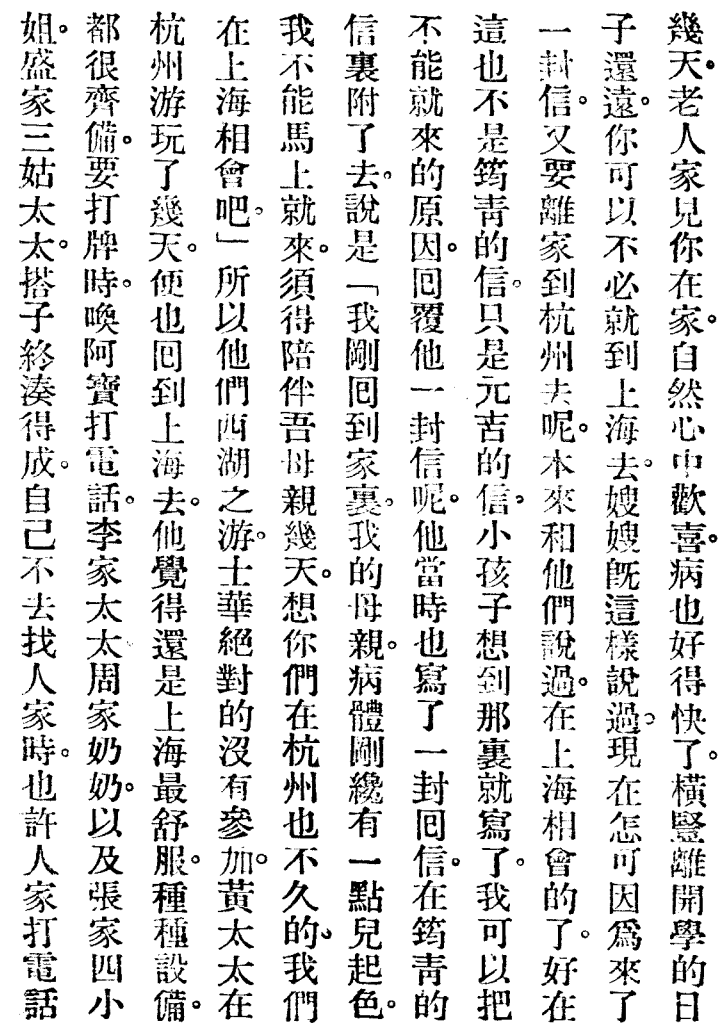 幾天。老人家見你在家。自然心中歡喜。病也好得快了。橫豎離開學的日
子還遠。你可以不必就到上海去。嫂嫂旣這樣說過。現在怎可因爲來了
一封信。又要離家到杭州去呢。本來和他們說過。在上海相會的了。好在
這也不是筠靑的信。只是元吉的信。小孩子想到那裏就寫了。我可以把
不能就來的原因。囘覆他一封信呢。他當時也寫了一封囘信。在筠靑的
信裏附了去。說是「我剛囘到家裏。我的母親。病體剛纔有一點兒起色。
我不能馬上就來。須得陪伴吾母親幾天。想你們在杭州也不久的。我們
在上海相會吧。」所以他們西湖之游。士華絕對的沒有參加。黃太太在
杭州游玩了幾天。便也囘到上海去。他覺得還是上海最舒服。種種設備。
都很齊備。要打牌時。喚阿寶打電話。李家太太周家奶奶。以及張家四小
姐。盛家三姑太太。搭子終湊得成。自己不去找人家時。也許人家打電話